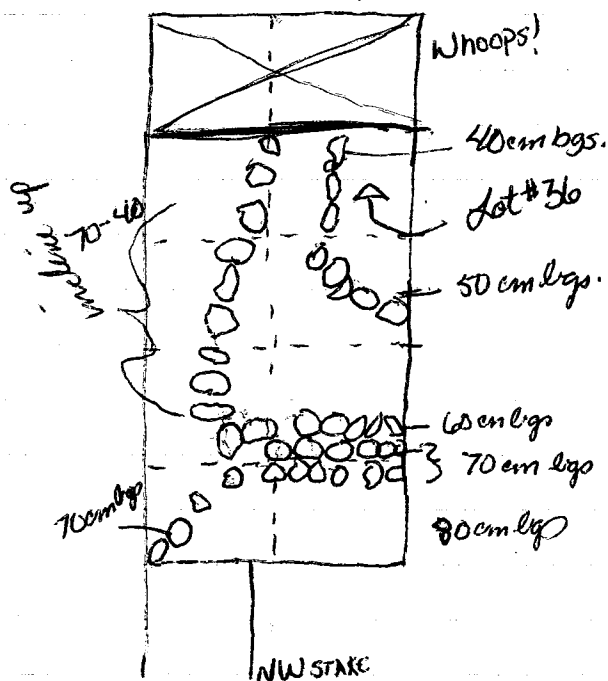 Whoops!
40cm bgs.
Lot #36
incline up
70-40
50 cm bgs.
60cm bgs
70 cm bgs
70cm bgs
80cm bgs
NW STAKE